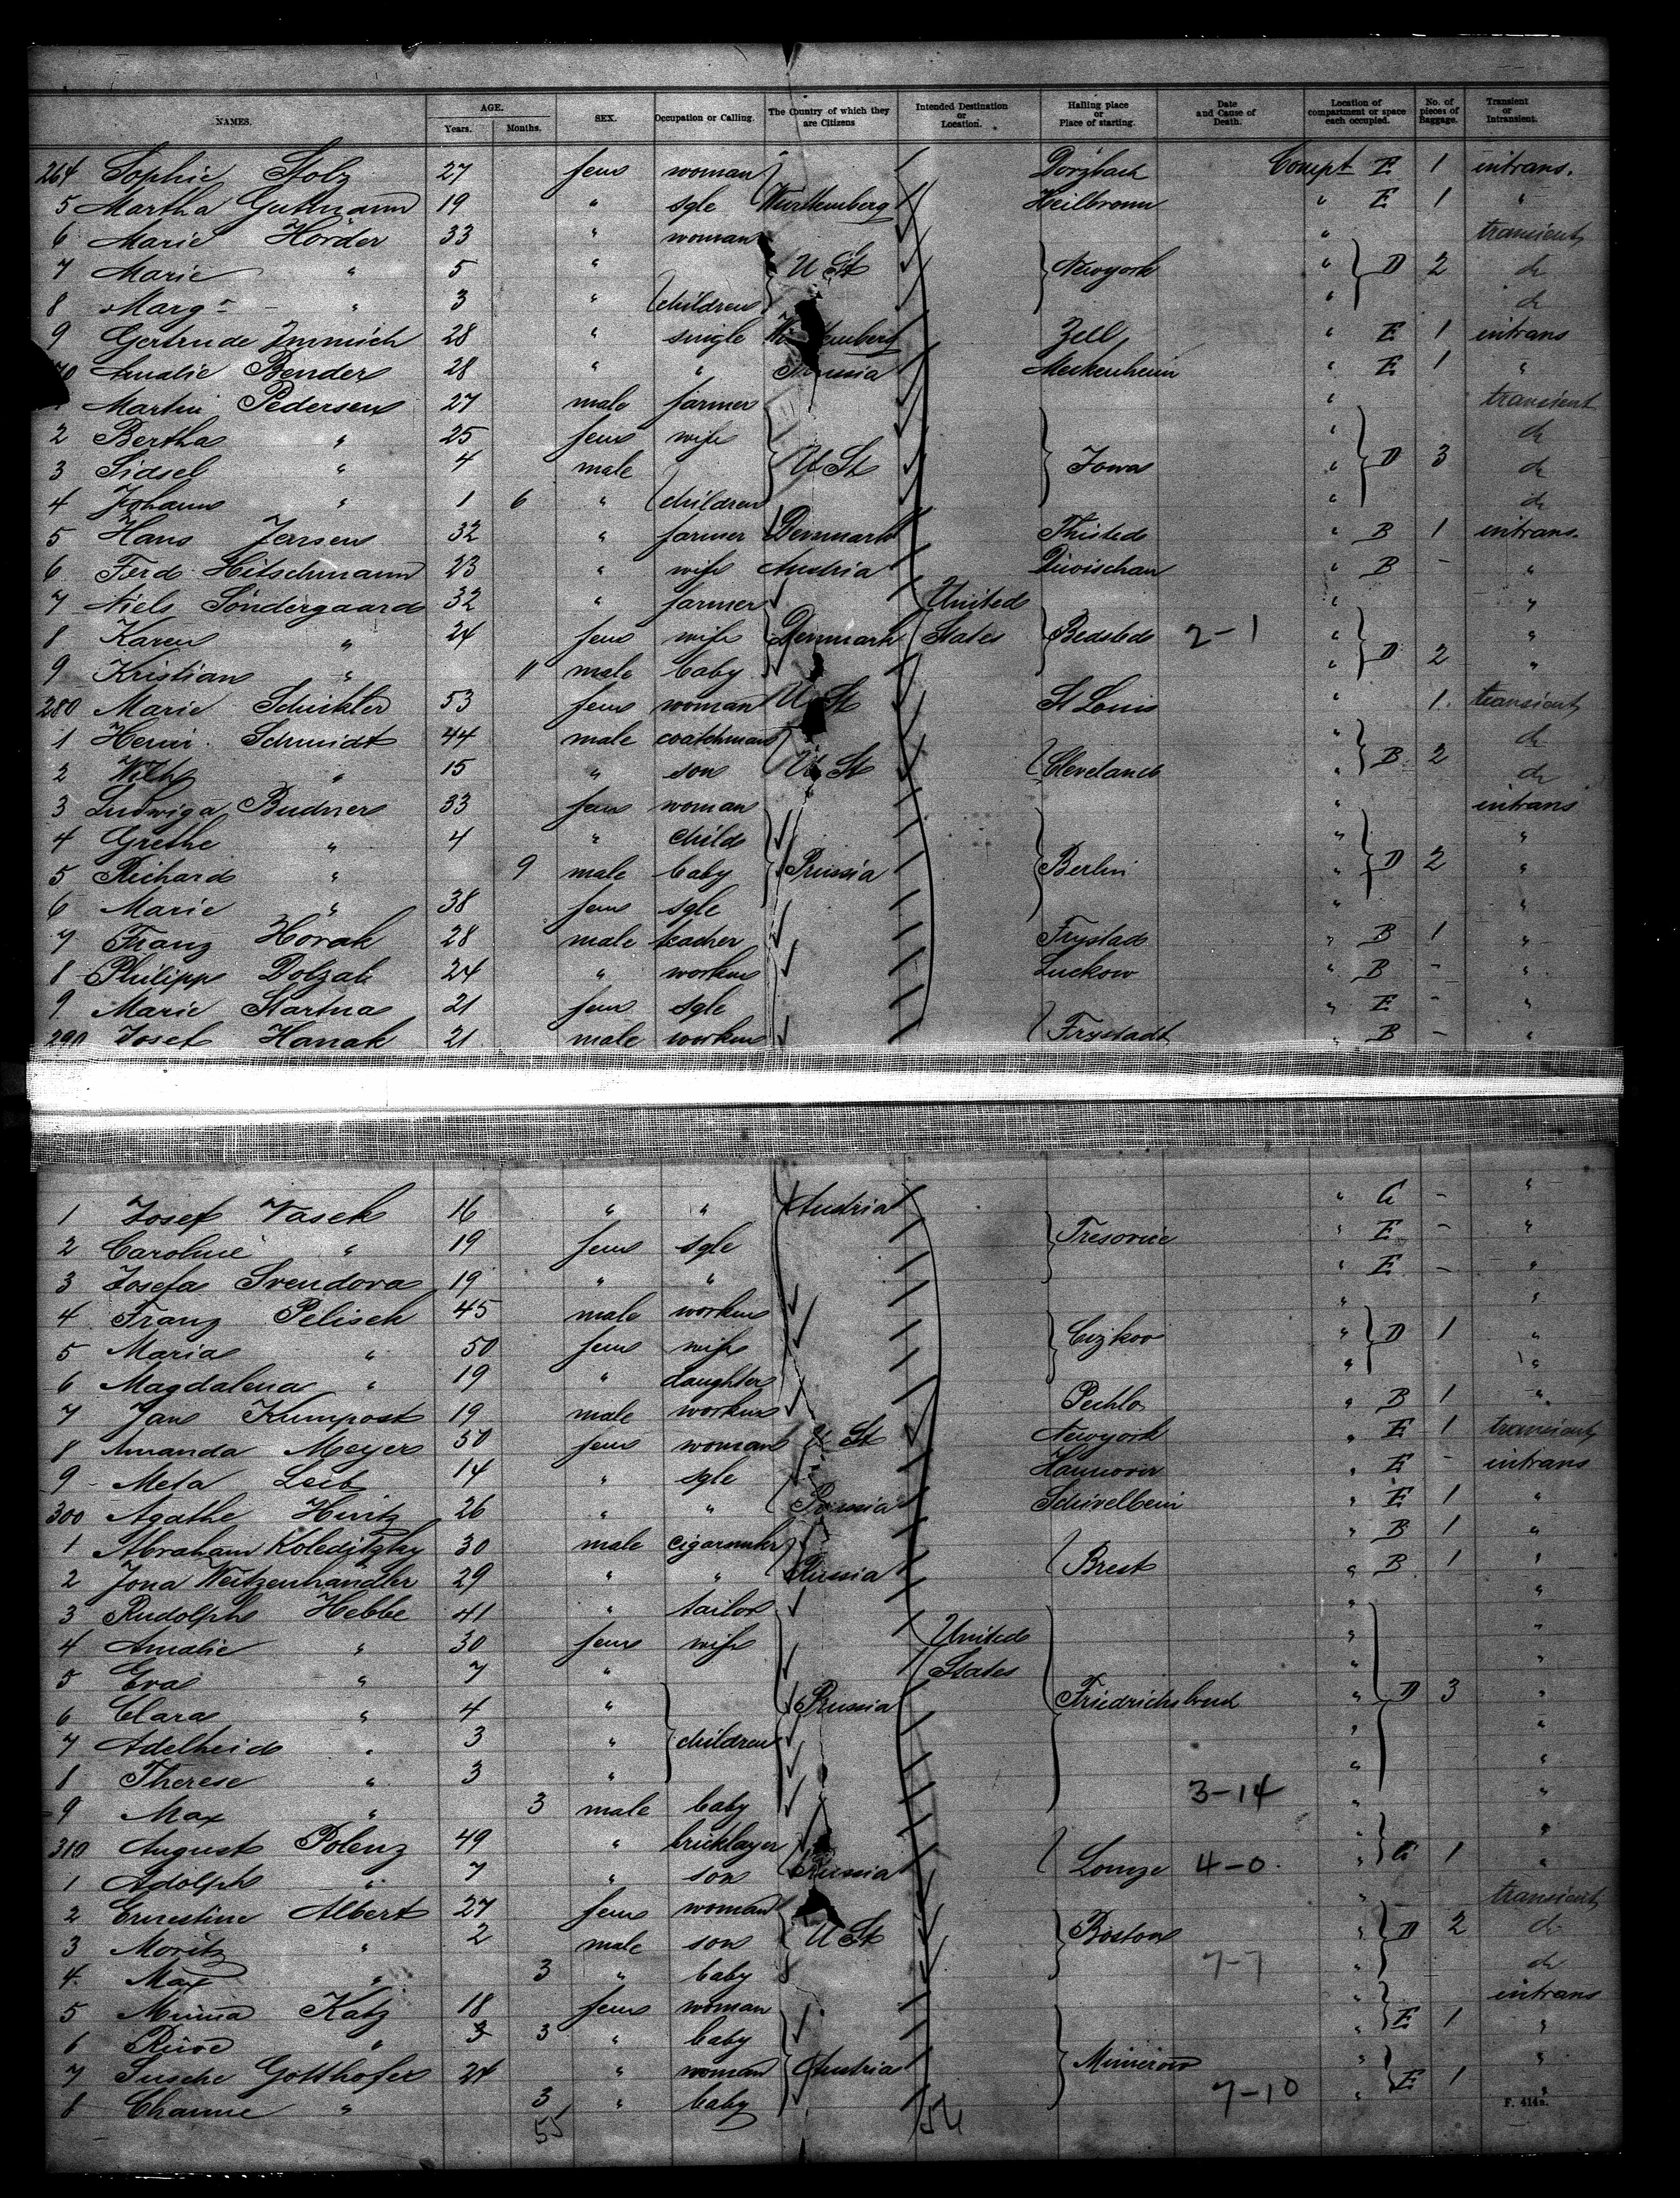 NAMES. AGE. Years. Months. SEX. Occupation or Calling. The Country of which they are Citizens Intended Destination or Location. Hailing place or Place of starting. Date and Cause of Death. Location of compartment or space each occupied. No. of pieces of Baggage. Transient or Intransient.
264 Sophie Stolz 27 fem woman Dörzbach Compt E 1 intrans.
5 Martha Gutmann 19 " sgle Württemberg Heilbronn " E 1 "
6 Marie Hörder 33 " woman " transient
7 Marie " 5 " U St Newyork " D 2 do
8 Marg " 3 " children " do
9 Gertrude Immich 28 " single Zell " E 1 intrans
Amalie Bender 28 " " Meckenheim " E 1 "
Martin Pedersen 27 male farmer " transient
2 Bertha " 25 fem wife " do
3 Sidsel " 4 male U St Iowa " D 3 do
4 Johann " 1 6 " children " do
5 Hans Jensen 32 " farmer Denmark Thisted " B 1 intrans.
6 Ferd. Hitschmann 23 " wife Austria Diwischau " B - "
7 Niels Söndergaard 32 " farmer United " "
8 Karen " 24 fem wife Denmark States Bedsted 2-1 " D 2 "
9 Kristian " 11 male baby " "
280 Marie Schickler 53 fem woman U St St Louis " 1. transient
1 Henri. Schmidt 44 male coatchman " do
2 Wilh " 15 " son U St Cleveland " B 2 do
3 Ludwiga Budner 33 fem woman " intrans
4 Grethe " 4 " child " "
5 Richard " 9 male baby Prussia Berlin " D 2 "
6 Marie " 38 fem sgle " "
7 Franz Horak 28 male teacher Frystad " B 1 "
8 Philipp Dolzal 24 " workm Luckow " B - "
9 Marie Startna 21 fem sgle " E - "
290 Josef Hanak 21 male workm Frystadt " B - "
1 Josef Vasek 16 " " Austria " G - "
2 Caroline " 19 fem sgle Tresovic " E - "
3 Josefa Svendova 19 " " " E - "
4 Franz Pelisek 45 male workm " "
5 Maria " 50 fem wife Cizkov " D 1 "
6 Magdalena " 19 " daughter " "
7 Jan Kumpost 19 male workm Pechlo " B 1 "
8 Amanda Meyer 50 fem woman U St Newyork " E 1 transient
9 Meta Leib 14 " sgle Hannover " E - intrans
300 Agathe Hintz 26 " " Prussia Schivelbein " E 1 "
1 Abraham Koleditzky 30 male cigarmkr " B 1 "
2 Jona Weitzenhandler 29 " " Russia Brest " B 1 "
3 Rudolph Hebbe 41 " tailor " "
4 Amalie " 30 fem wife United " "
5 Eva " 7 " States " "
6 Clara " 4 " Prussia " D 3 "
7 Adelheid " 3 " children " "
8 Therese " 3 " " "
9 Max " 3 male baby 3-14 " "
310 August Polenz 49 " bricklayer " "
1 Adolph " 7 " son Russia Lomze 4-0. " G 1 "
2 Ernestine Albert 27 fem woman " transient
3 Moritz " 2 male son U St Boston " D 2 do
4 Max " 3 " baby 7-7 " do
5 Minna Katz 18 fem woman " intrans
6 " 3 3 " baby " E 1 "
7 Susche Gotthofer 24 " woman Austria " "
8 Channe " 3 " baby 7-10 " E 1 "
55 54
F. 414a.